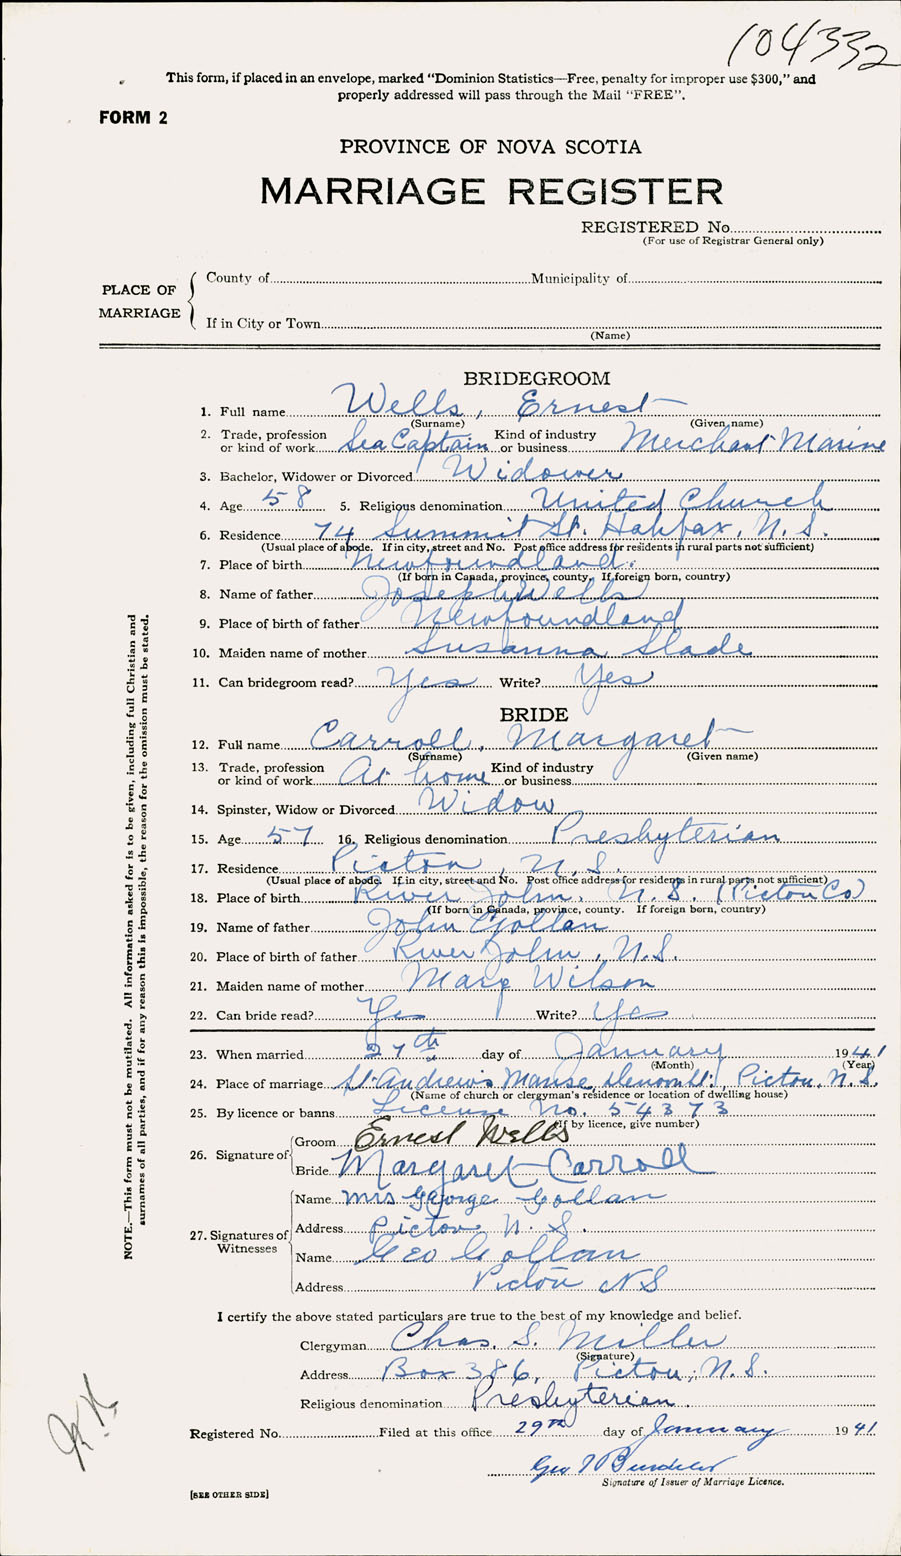 104332
This form, if placed in an envelope, marked "Dominion Statistics—Free, penalty for improper use $300," and
properly addressed will pass through the Mail "FREE".
FORM 2
PROVINCE OF NOVA SCOTIA
MARRIAGE REGISTER
REGISTERED No.
(For use of Registrar General only)
PLACE OF MARRIAGE
County of Municipality of
If in City or Town
(Name)
BRIDEGROOM
1. Full name Wells, Ernest
(Surname) (Given name)
2. Trade, profession or kind of work Sea Captain Kind of industry or business Merchant Marine
3. Bachelor, Widower or Divorced Widower
4. Age 58 5. Religious denomination United Church
6. Residence 74 Summit St. Halifax, N.S.
(Usual place of abode. If in city, street and No. Post office address for residents in rural parts not sufficient)
7. Place of birth Newfoundland.
(If born in Canada, province, county. If foreign born, country)
8. Name of father Joseph Wells
9. Place of birth of father Newfoundland
10. Maiden name of mother Susanna Slade
11. Can bridegroom read? Yes Write? Yes
BRIDE
12. Full name Carroll, Margaret
(Surname) (Given name)
13. Trade, profession or kind of work At home Kind of industry or business
14. Spinster, Widow or Divorced Widow
15. Age 57 16. Religious denomination Presbyterian
17. Residence Pictou, N.S
(Usual place of abode. If in city, street and No. Post office address for residents in rural parts not sufficient)
18. Place of birth River John, N.S. (Pictou Co)
(If born in Canada, province, county. If foreign born, country)
19. Name of father John Gollan
20. Place of birth of father River John, N.S.
21. Maiden name of mother Mary Wilson
22. Can bride read? Yes Write? Yes
23. When married 27th day of January 1941
(Month) (Year)
24. Place of marriage St. Andrew's Manse, St., Pictou, N.S.
(Name of church or clergyman's residence or location of dwelling house)
25. By licence or banns License No. 54373
(If by licence, give number)
26. Signature of Groom Ernest Wells
Bride Margaret Carroll
27. Signatures of Witnesses Name Mrs George Gollan
Address Pictou N.S.
Name Geo Gollan
Address Pictou NS
I certify the above stated particulars are true to the best of my knowledge and belief.
Clergyman Chas. S. Miller
(Signature)
Address Box 386, Pictou, N.S.
Religious denomination Presbyterian.
Registered No. Filed at this office 29th day of January 1941
Geo
Signature of Issuer of Marriage Licence.
[SEE OTHER SIDE]
NOTE.—This form must not be mutilated. All information asked for is to be given, including full Christian and
surnames of all parties, and if for any reason this is impossible, the reason for the omission must be stated.